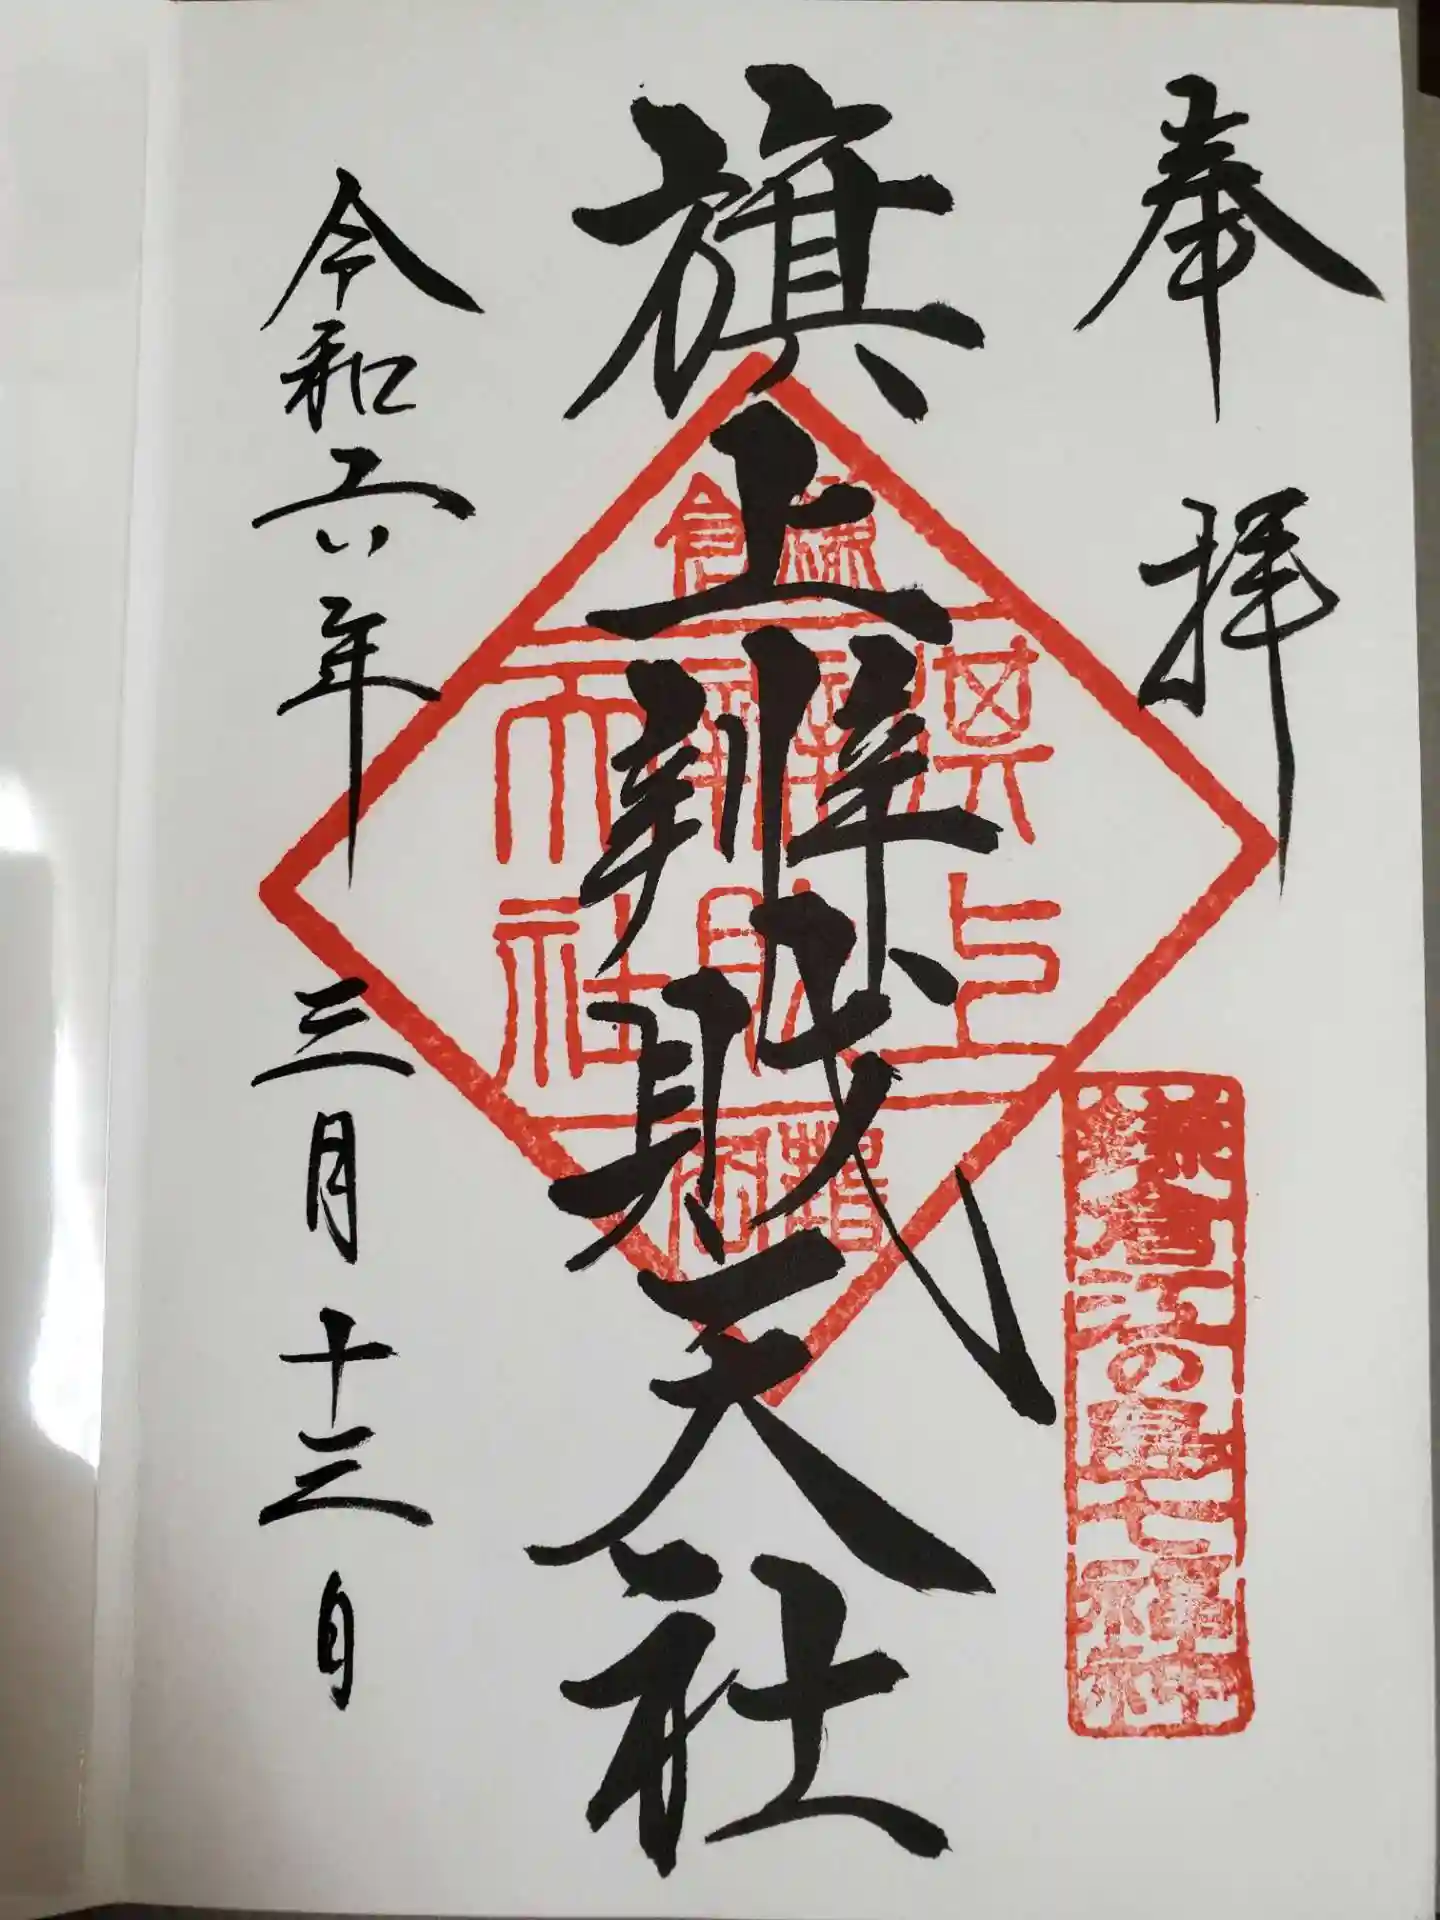 奉拝
鎌倉江の島七福神
旗上辨財天社
鎌倉
旗上
辨財
天社
令和六年三月十三日